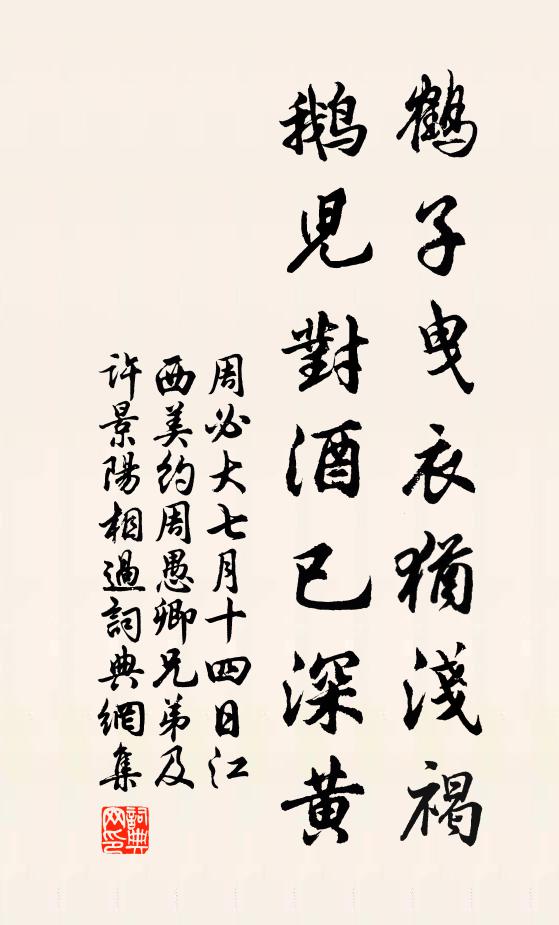 鶴子曳衣猶淺褐
鵝兒對酒已深黃
周必大七月十四日江
西美約周愚卿兄弟及
許景陽相過詞典網集
詞典
网印